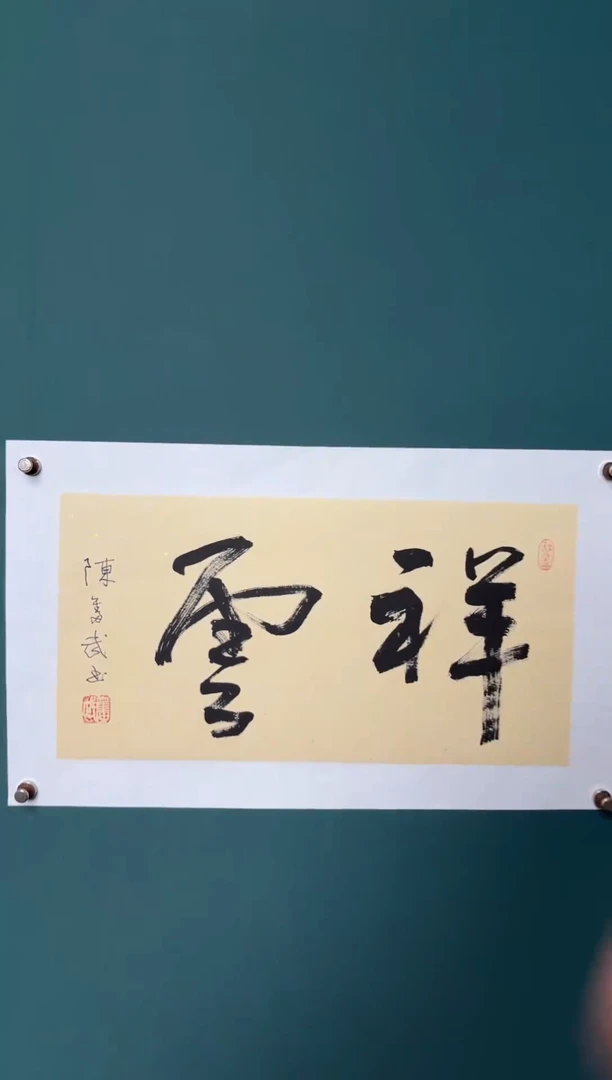 祥雲
陳
武書